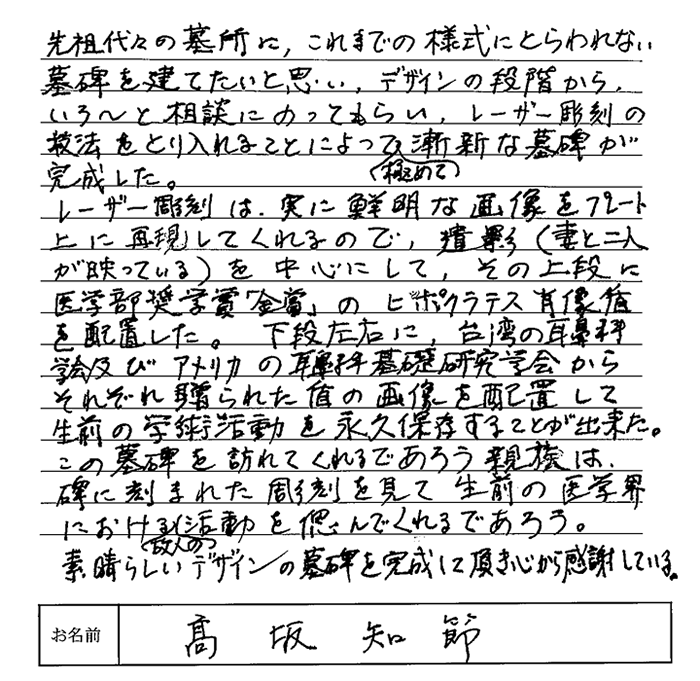 先祖代々の墓所に、これまでの様式にとらわれない
墓碑を建てたいと思い、デザインの段階から、
いろ〜と相談にのってもらい、レーザー彫刻の
技法をとり入れることによって漸新な墓碑が
(極めて)
完成した。
レーザー彫刻は、実に鮮明な画像をプレート
上に再現してくれるので、遺影(妻と二人
が映っている)を中心にして、その上段に
医学部奨学賞「金賞」のヒポクラテス肖像値
を配置した。 下段左右に、台湾の耳鼻科
学会及びアメリカの耳鼻科基礎研究学会から
それぞれ贈られた値の画像を配置して
生前の学術活動を永久保存することが出来た。
この墓碑を訪れてくれるであろう親族は、
碑に刻まれた彫刻を見て生前の医学界
における活動を偲んでくれるであろう。
(故人の)
素晴らしいデザインの墓碑を完成して頂き心から感謝している。
お名前 髙坂知節